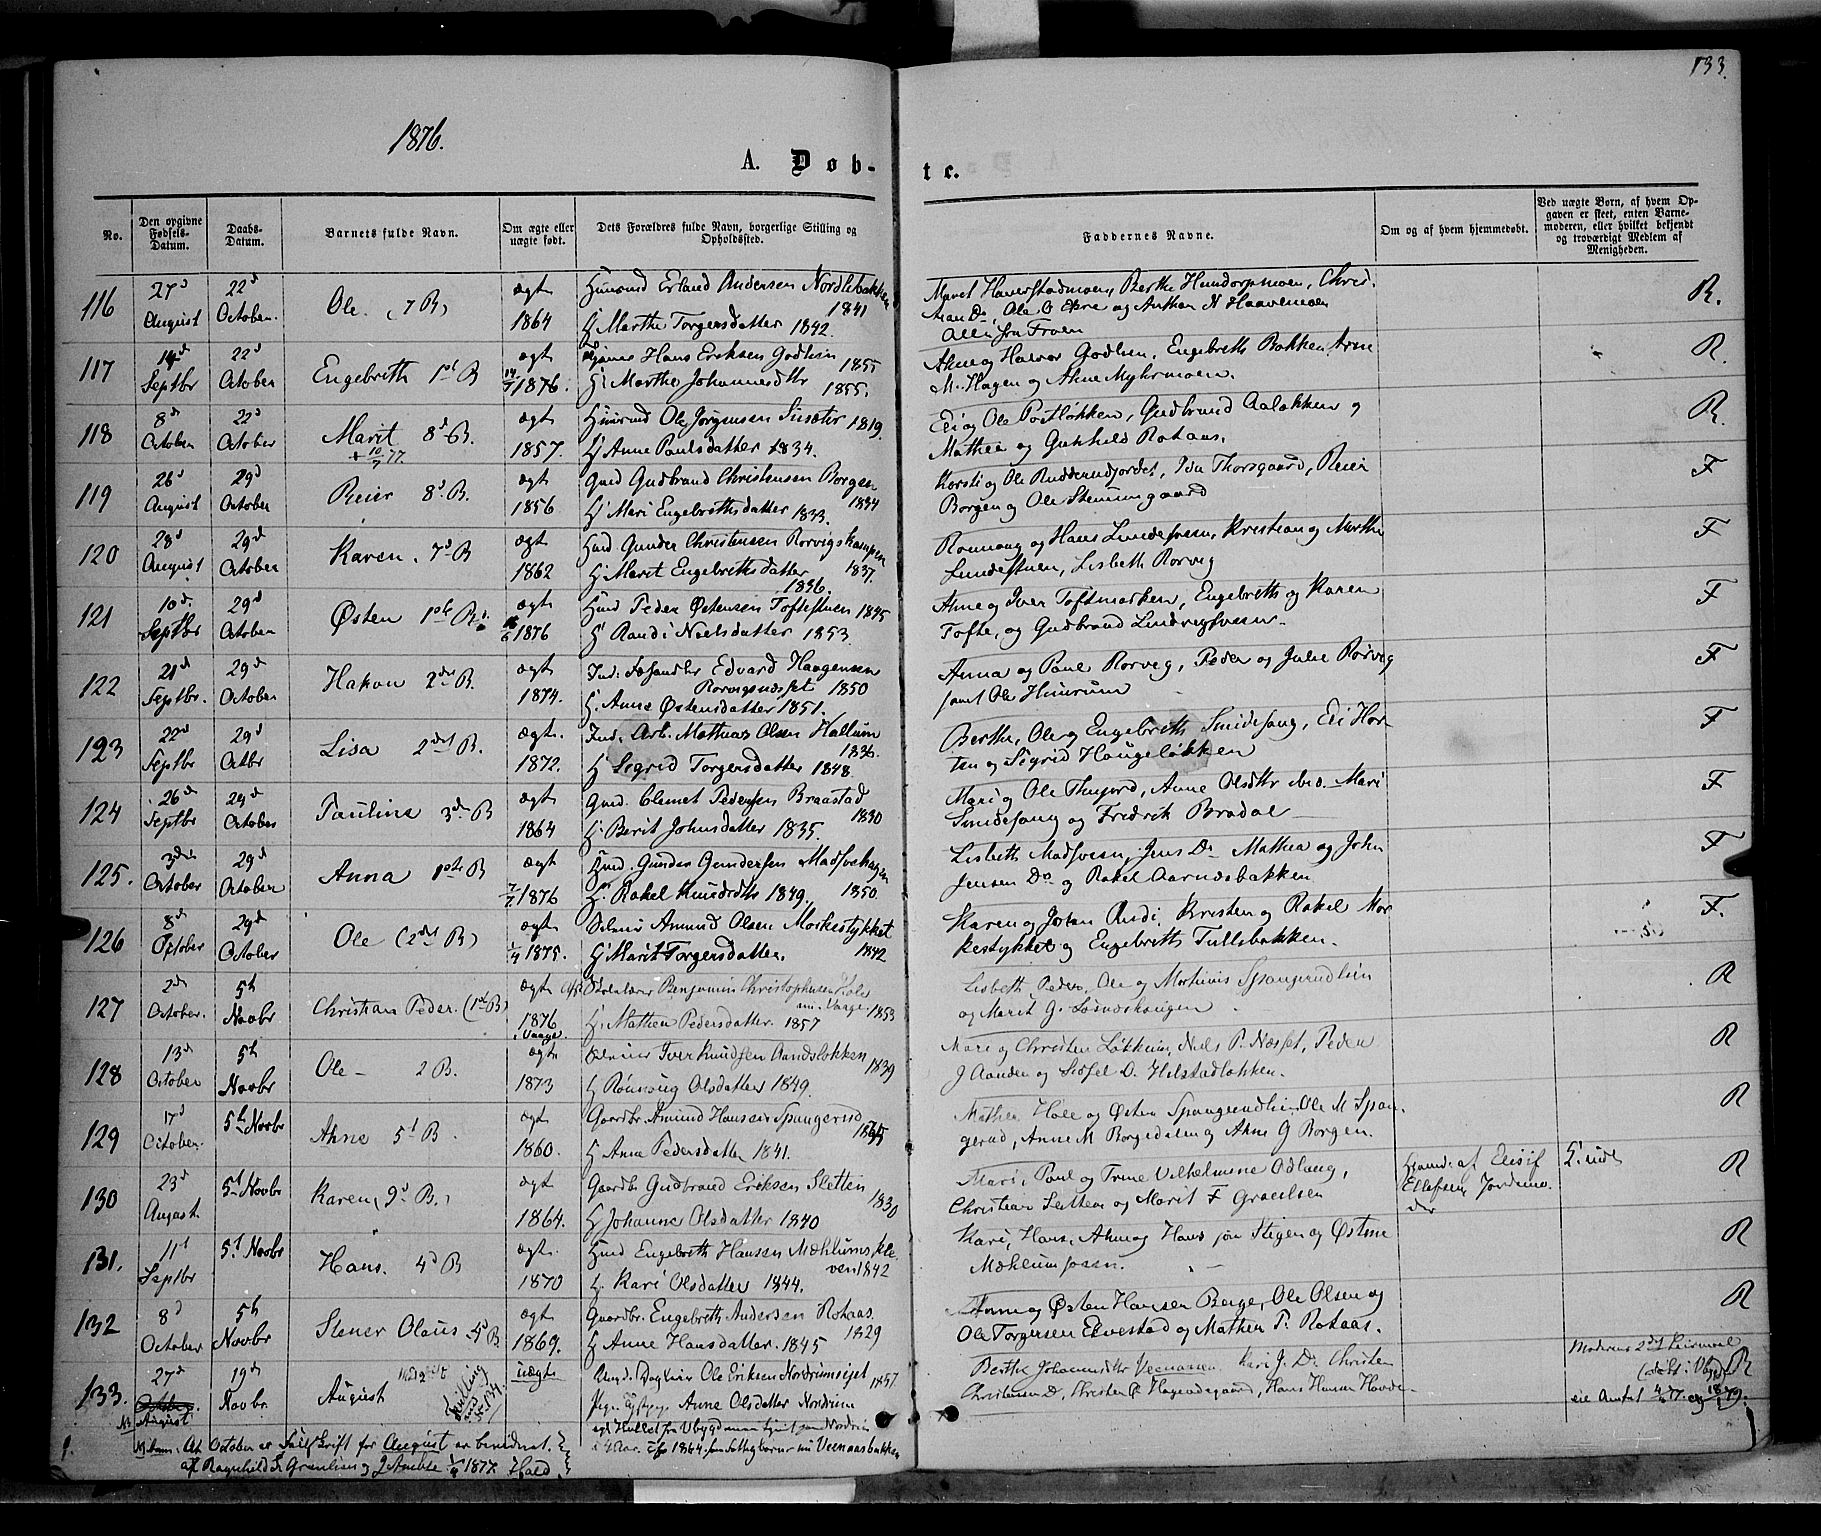 133.
1876.
A. Døb-
te.
No.
Den opgivne Fødsels-Datum.
Daabs-Datum.
Barnets fulde Navn.
Om ægte eller uægte født.
Dets Forældres fulde Navn, borgerlige Stilling og Opholdssted.
Faddernes Navne.
Om og af hvem hjemmedøbt.
Ved uægte Børn, af hvem Opgaven er skeet, enten Barnemoderen, eller hvilket bekjendt og troværdigt Medlem af Menigheden.
116
27d August
22d October.
Ole. (7 B)
ægt 1864
Huusmd Erland Andersen Nordlebakken 1841
H Marthe Torgersdatter 1842.
Marit Haverstadmoen, Berthe Hundorpmoen, Chris-
tian Do, Ole O Ekre og Anthon N Haavemoen
Alle fra Froen
R.
117
14d Septbr
22d October
Engebreth 1st B
ægt 1876.
Hans Eriksen Godlien 1855
H Marthe Johannesdtr 1855.
Ahne og Halvor Godlien, Engebreth Bakken, Arne
M. Hagen og Ahne Myhrmoen.
R.
118
8d October
22d October
Marit 8d B.
+ 10/7 77.
ægt 1857.
Huusmd Ole Jørgensen 1819.
H Anne Paulsdatter 1834.
Eli og Ole Postløkken, Gudbrand Aaløkken og
Mathea og Gunhild Rotaas.
R.
119
26d August
29d October
Reier 8d B.
ægt 1856
Gmd Gudbrand Christensen Borgen 1834
H Mari Engebrethsdatter 1833.
Kersti og Ole Rudderudjordet, Ida Thorsgaard, Reier
Borgen og Ole Steinumgaard
F
120
28d August
29d October
Karen. 7d B
ægt 1862
Hmd Gunder Christensen Rorvigskampen 1837.
H Marit Engebrethsdatter 1836.
Ronnaug og Hans Lundestuen, Kristian og Marthe
Lundestuen, Lisbeth Rorvig
F
121
10d. Septbr
29d October
Østen 1ste B.
ægt 1876
Hmd Peder Østensen Toftestuen 1845
H Randi Noelsdatter 1853.
Anne og Iver Toftmarken, Engebreth og Karen
Tofte, og Gudbrand
F
122
21d Septbr.
29d October
Hakon 2det B.
ægt 1874.
Ind. Edvard Haagensen
Rorvignæsset 1850
H. Anne Østensdatter 1851.
Anna og Paul Rorveg, Peder og Julie Rorveg
samt Ole Hunrum
F
123
22d Septbr
29d Octbr
Lisa 2det B.
ægt. 1872.
Ind. Arb. Mathias Olsen Hallum 1836.
H Segrid Torgersdatter 1848.
Berthe, Ole og Engebreth Smidesang, Eli Hor-
ten og Sigrid Haugeløkken
F
124
26d Septbr
29d October
Pauline 3die B
ægt 1864
Gmd. Clemet Pedersen Braastad 1830
H. Berit Johnsdatter 1835.
Mari og Ole Thujord, Anne Olsdtr ibid. Mari
Smidesang og Fredrik Bradal
F
125.
3die October
29d October
Anna 1ste B
ægt 7/7 1876
Hmd. Gunder Gundersen Madsvehagen 1850.
H. Rakel Knudsdtr 1849.
Lisbeth Madsveen, Jens Do Mathea og John
Jensen Do og Rakel Aarnæsbakken
F
126
8d October
29d October
Ole (2det B)
ægt 1/4 1875.
Amund Olsen Morkestykket 1842
H Marit Torgersdatter.
Karen og Johan Rudi, Kristen og Rakel Mor-
kestykket og Engebreth Tullsbakken.
F.
127
2d October.
5te Novbr
Christian Peder. (1ste B)
ægt 1876 i Vaage.
Benjamin Christophersen Hole 1853
H. Mathea Pedersdatter. 1857
Lisbeth Peder, Ole og Mortinus Spangrudlien
og Marit G.
R
128
13d October
5te Novbr
Ole – 2 B.
ægt 1873
Iver Knudsen Aandsløkken 1839
H Rønnaug Olsdatter 1849.
Mari og Christen Løkken, Niels P. Næsset, Peder
J Aanden og Sidsel D. Hilstadløkken.
R
129
17d October.
5te Novbr
Ahne 5t B.
ægt 1860.
Gaardbr. Amund Hansen Spangerud
H Anne Pedersdatter 1841.
Mathea Hole og Østen Spangrudlien, Ole M Span-
gerud, Anne M Borgedalen og Ahne G Borgen.
R
130
23d August
5te Novbr
Karen, (9d B.)
ægt 1864.
Gaardbr Gudbrand Eriksen Sletten 1830
H Johanne Olsdatter 1840
Mari, Paul og Trine Vilhelmine Odlaug,
Christian Sletten og Marit F
af Ellefsen Jordmo-
der
R
131.
11t Septbr
5te Novbr
Hans. 4d B
ægt. 1870
Hmd Engebreth Hansen Mæhlumskle-
ven 1842
H. Kari Olsdatter 1844.
Kari, Hans, Ahne og Hans Stigen og Østine
Mæhlumsveen.
R
132
8d October
5te Novbr
Stener Olaus 4d B.
ægt 1869.
Gaardbr. Engebreth Andersen Rotaas. 1829
H Anne Hansdatter 1845
Anne og Østen Hansen Berge, Ole Olsen og
Ole Torgersen Ekvestad og Mathea P. Rotaas.
R
133.
27d October. August
19de Novbr
August
uægte
Ungk. Dagleier Ole Eriksen Nordrumsejet 1857
Pige Anne Olsdatter Nordrum
Berthe Johannesdtr Veenaasen Kari J. Do. Christen
Christensen Do, Christen P. Hagendsgaard, Hans Hansen
Moderens 2det Leiermaal
R
At October er Feilskrift for August er bevidnet
af Ragnhild 1877. Hald.